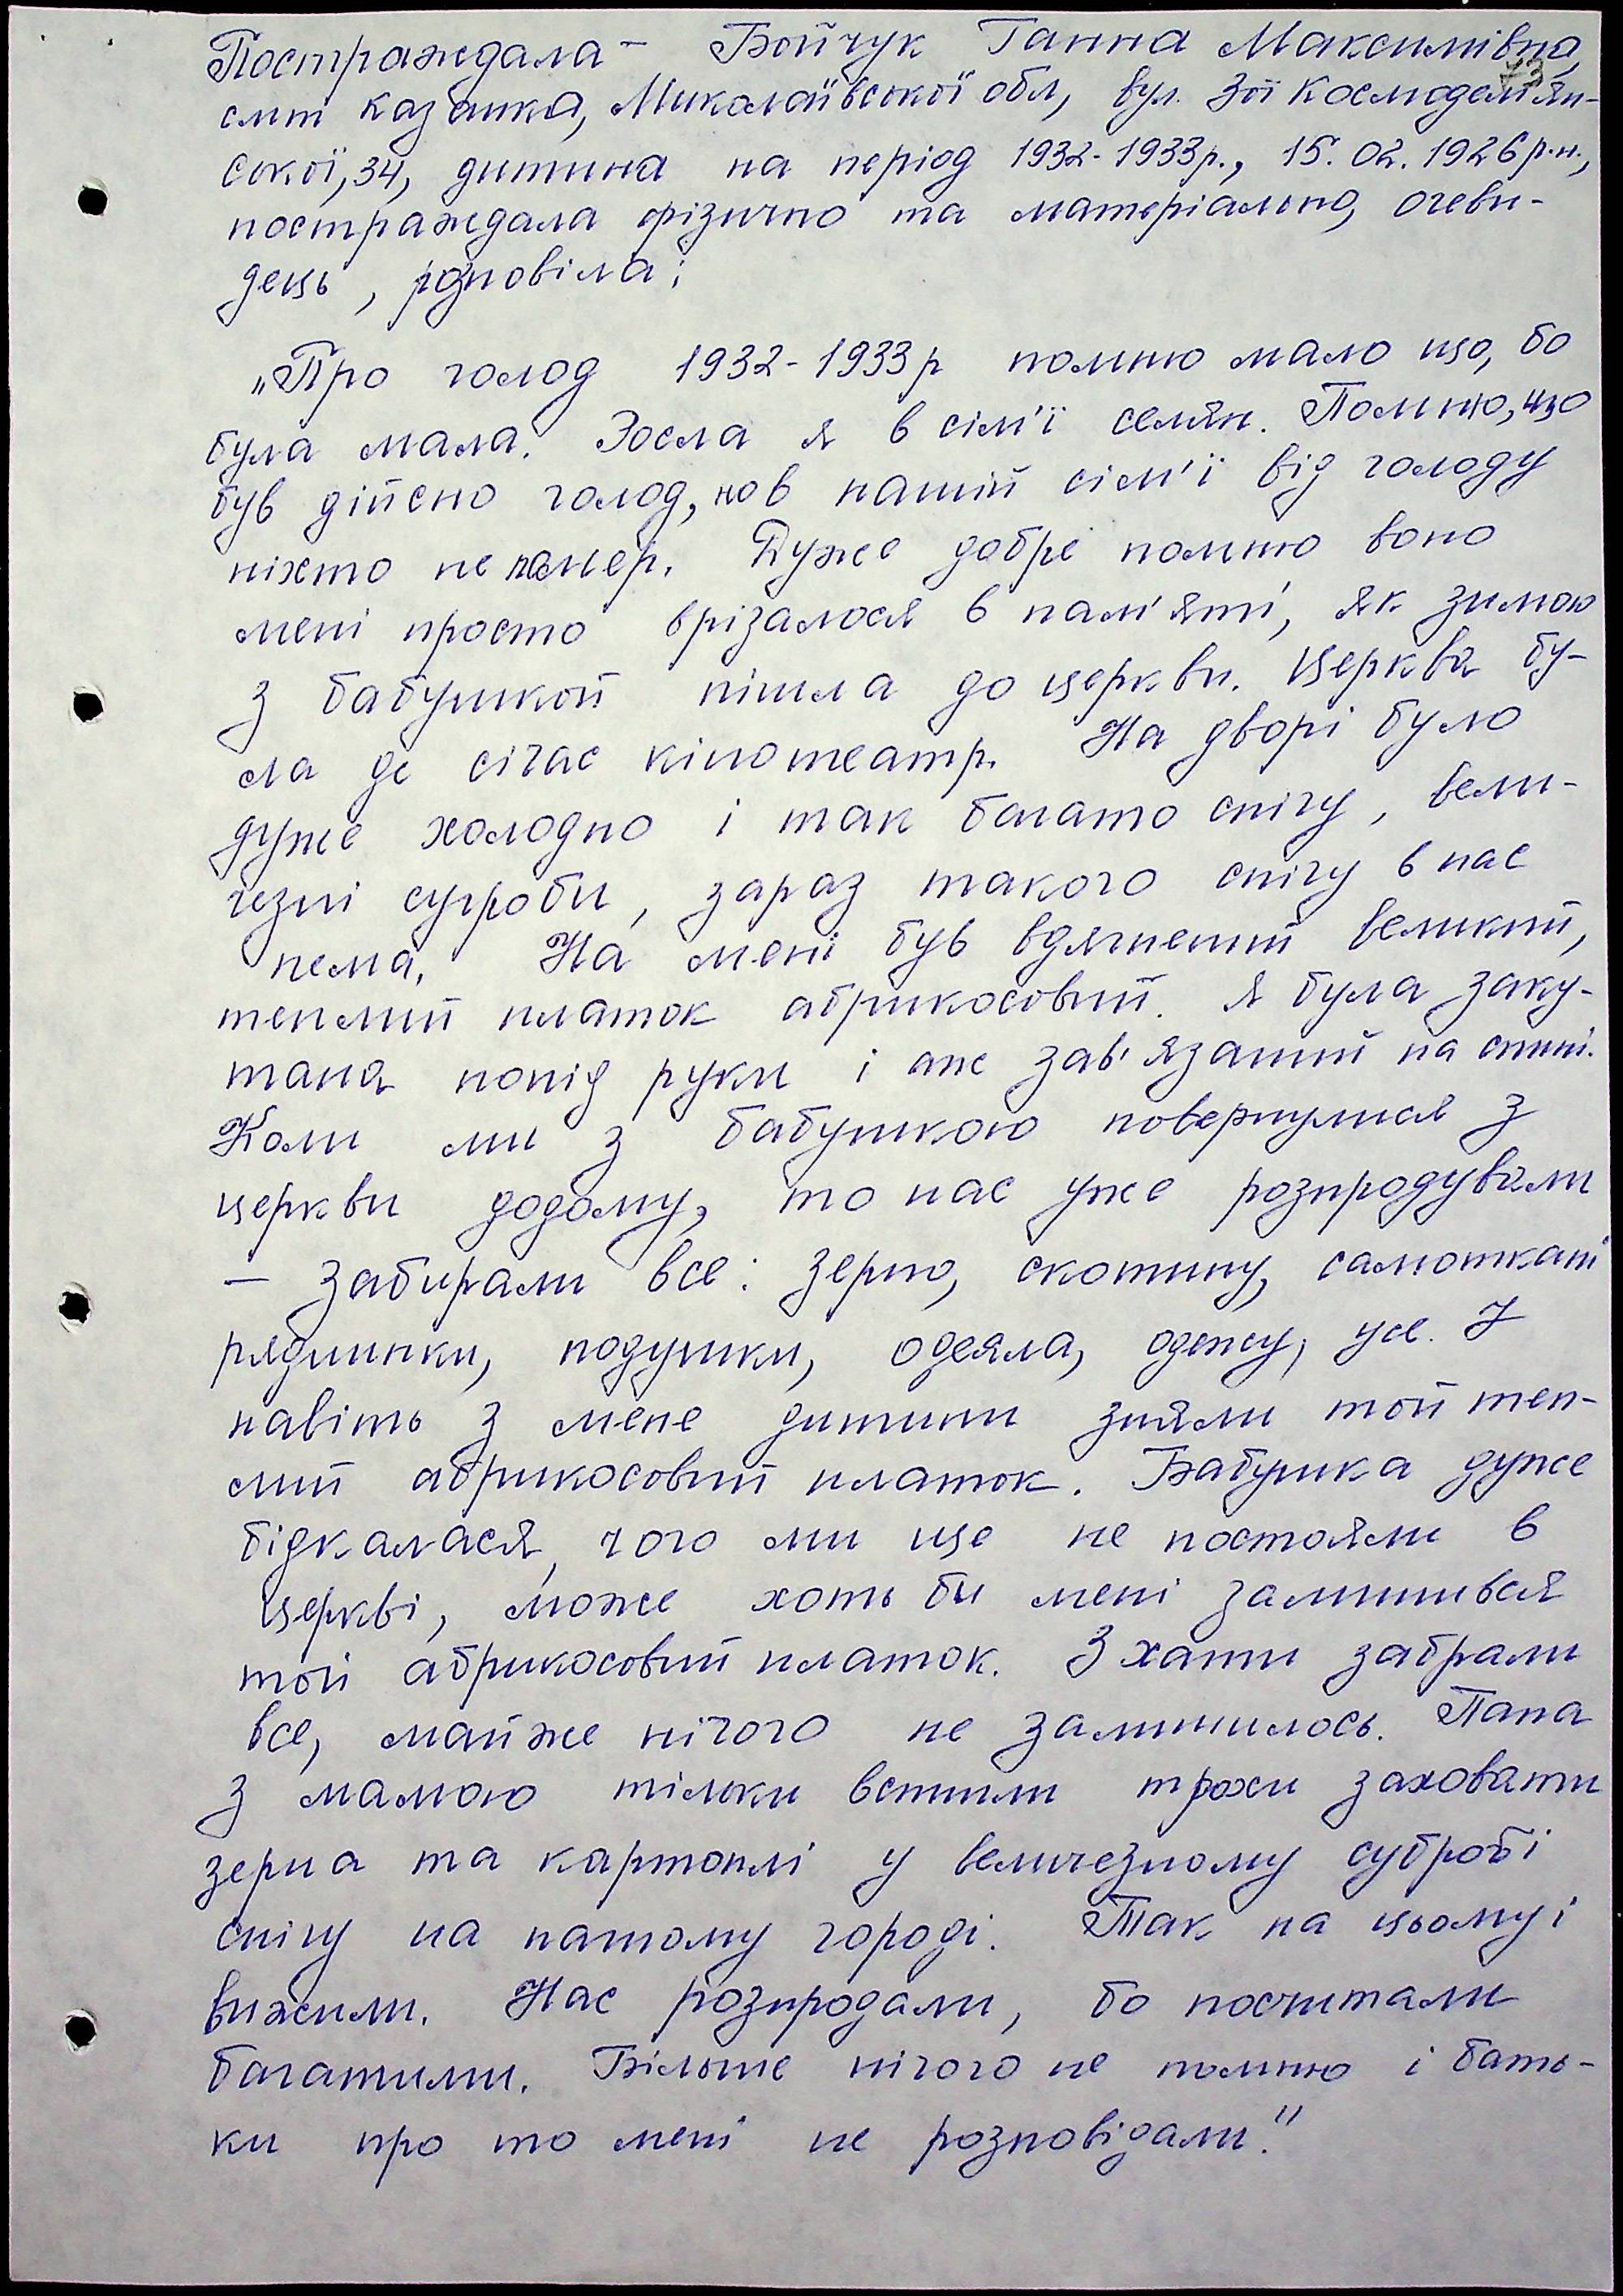 Постраждала – Бойчук Ганна Максимівна,
73
смт Казанка, Миколаївської обл, вул. Зої Космодем'ян-
ської, 34, дитина на період 1932-1933р., 15.02.1926р.н.,
постраждала фізично та матеріально, очеви-
дець, розповіла:
„Про голод 1932-1933р помню мало що, бо
була мала. Зосла я в сім'ї селян. Помню, що
був дійсно голод, но в нашій сім'ї від голоду
ніхто не помер. Дуже добре помню воно
мені просто врізалося в пам'яті, як зимою
з бабушкой пішла до церкви. Церква бу-
ла де січас кінотеатр. На дворі було
дуже холодно і так багато снігу, вели-
чезні сугроби, зараз такого снігу в нас
нема. На мені був вдягнений великий,
теплий платок абрикосовий. Я була заку-
тана попід руки і аж зав'язаний на спині.
Коли ми з бабушкою повернулися з
церкви додому, то нас уже розпродували
– забирали все: зерно, скотину, самоткані
ряднинки, подушки, одеяла, одежу, усе. І
навіть з мене дитини зняли той теп-
лий абрикосовий платок. Бабушка дуже
бідкалася, чого ми ще не постояли в
церкві, може хоть би мені залишився
той абрикосовий платок. З хати забрали
все, майже нічого не залишилось. Папа
з мамою тільки встигли трохи заховати
зерна та картоплі у величезному субробі
снігу на нашому городі. Так на цьому і
вижили. Нас розпродали, бо посчитали
багатими. Більше нічого не помню і бать-
ки про то мені не розповідали."